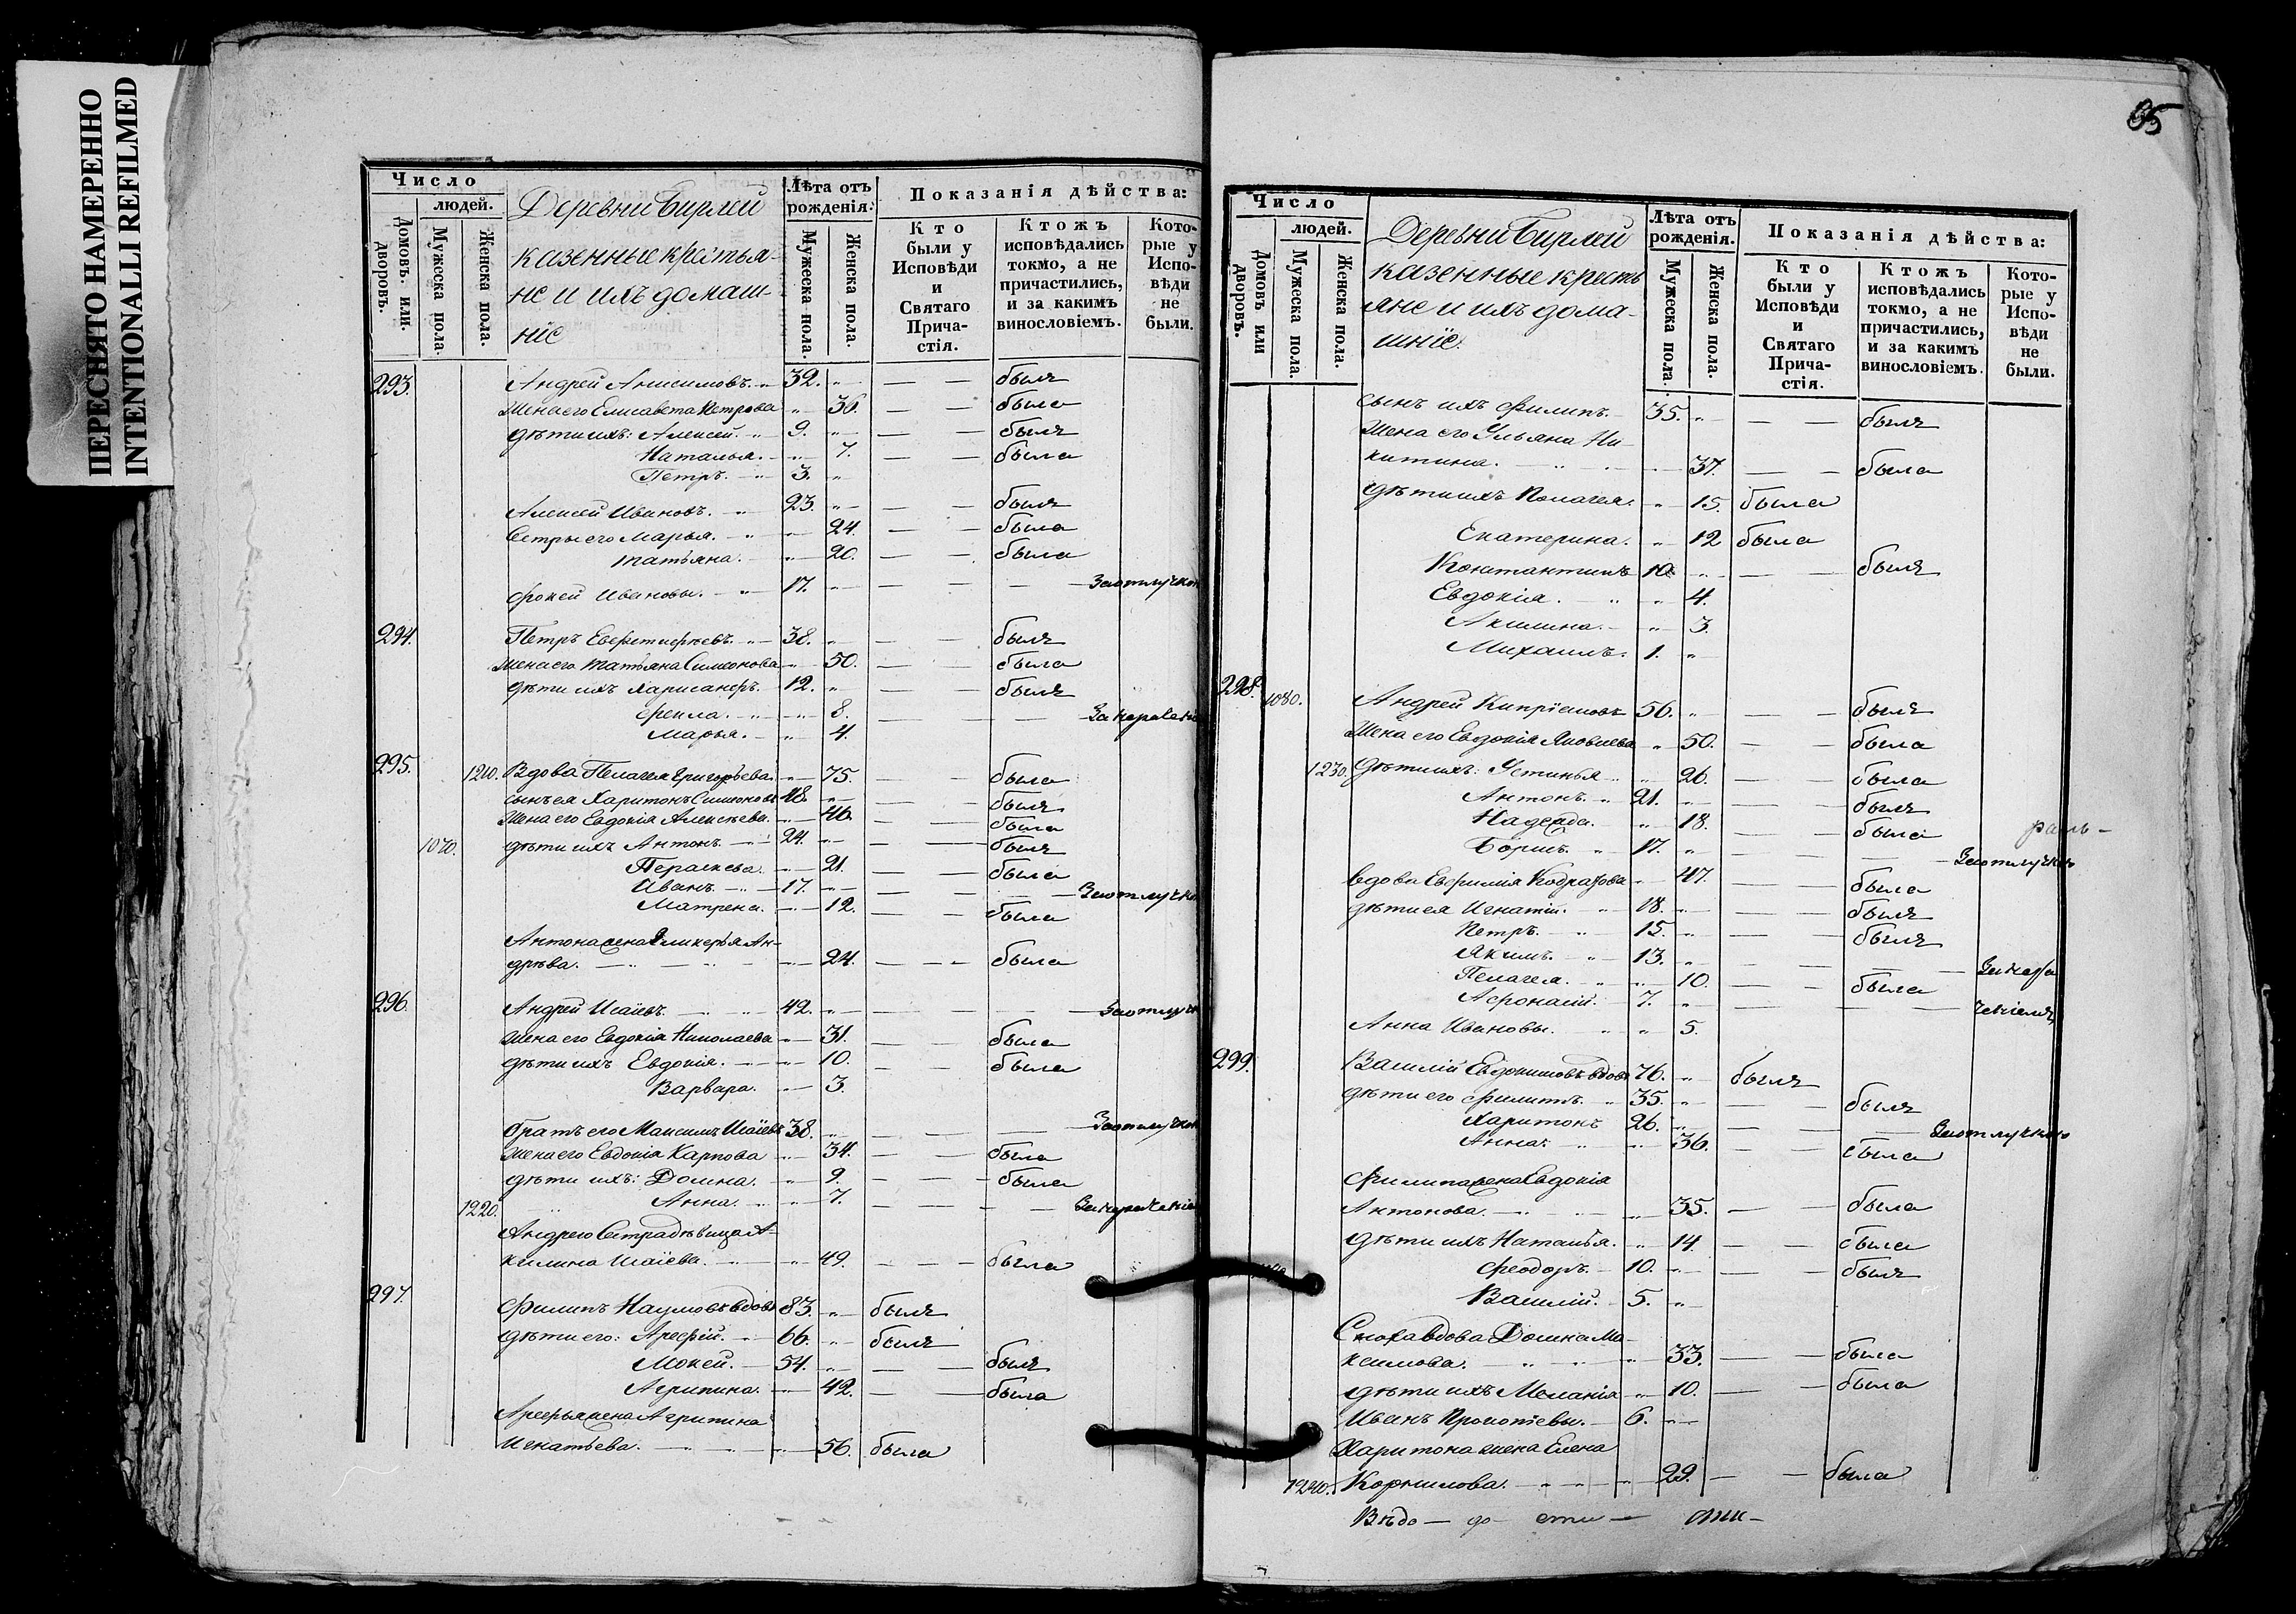 ПЕРЕСНЯТО НАМЕРЕННО
INTENTIONALLI REFILMED
Число
людей.
Домовъ или дворовъ.
Мужеска пола.
Женска пола.
Деревни Бирлей
казенные кретья-
не и ихъ домаш-
ніе
Лѣта отъ рожденія.
Мужеска пола.
Женска пола.
Показанія дѣйства:
Кто были у Исповѣди и Святаго Прича-стія.
Ктожъ исповѣдались токмо, а не причастились, и за какимъ винословіемъ.
Кото-рые у Испо-вѣди не были.
293. Андрей Анисимовъ. 32. — — былъ
Жена его Елисавета Петрова 36. — — была
дѣти ихъ: Алексей. 9. — — былъ
Наталья. 7. — — была
Петръ. 3.
Алексей Ивановъ. 23. — — былъ
Сетры его Марья. 24. — — была
Татьяна. 20. — — была
Фокей Ивановы. 17. — — — За отлучкою
294. Петръ 38. — — былъ
жена его Татьяна Симионова 50. — — была
дѣти ихъ 12. — — былъ
Фекла. 8. — —
Марья. 4.
295. 1210. Вдова Пелагея Григорьева. 75. — — была
сынъ ея Харитонъ Симионовъ 48. — — былъ
Жена его Евдокія Алексѣева. 46. — — была
1070. дѣти ихъ Антонъ. 24. — — былъ
Параскева. 21. — — была
Иванъ. 17. — — — За отлучкою
Матрена. 12. — — была
Антона жена Гликерья Ан-
дрѣва. 24. — — была
296. Андрей Исаіевъ. 42. — — — За отлучк
Жена его Евдокія Николаева 31. — — была
дѣти ихъ Евдокія. 10. — — была
Варвара. 3.
братъ его Максимъ Исаіевъ 38. — — — За отлучкою
Жена его Евдокія Карпова 34. — — была
дѣти ихъ: Домна. 9. — — была
1220. Анна. 7. — — —
Андрею Сетра дѣвица А-
килина Исаіева. 49. — — была
297. Филипъ Наумовъ вдовъ 83. былъ
дѣти его: Арефій. 66. былъ
Мокей. 54. — — былъ
Агрипина. 42. — — была
Арефья жена Агрипина
Игнатьева. 56. была
95
Число
людей.
Домовъ или дворовъ.
Мужеска пола.
Женска пола.
Деревни Бирлей
казенные кресть
яне и ихъ дома-
шніе.
Лѣта отъ рожденія.
Мужеска пола.
Женска пола.
Показанія дѣйства:
Кто были у Исповѣди и Святаго Прича-стія.
Ктожъ исповѣдались токмо, а не причастились, и за какимъ винословіемъ.
Кото-рые у Испо-вѣди не были.
сынъ ихъ Филипъ. 35. — — былъ
Жена его Ульяна Ни-
китина. 37. — — была
дѣти ихъ Полагея. 15. была
Екатерина. 12 была
Контантинъ 10. — — былъ
Евдокія. 4.
Акилина. 3.
Михаилъ. 1.
298. 1080. Андрей Кипріановъ 56. — — былъ
Жена его Евдокія Яковлева 50. — — была
1230. дѣти ихъ: Устинья 26. — — была
Антонъ. 21. — — былъ
Надежда. 18. — — была
Борисъ. 17. — — — За отлучкою
вдова Евфимія Кодратова 47. — — была
дѣти ея Игнатій. 18. — — былъ
Петръ. 15. — — былъ
Якимъ. 13. — — —
Пелагея. 10. — — была
Афонасій. 7. — — —
Анна Ивановы. 5.
299. Василій Евдокимовъ вдовъ 76. былъ
дѣти его Филиппъ. 35. — — былъ
Харитонъ 26. — — — За отлучкою
Анна 36. — — была
Филипа жена Евдокія
Антонова. 35. — — была
дѣти ихъ Наталья. 14. — — была
Феодоръ. 10. — — былъ
Василій. 5.
Сноха вдова Домна Ма-
ксимова. 33. — — была
дѣти ихъ Меланія 10. — — была
Иванъ Прокопіевы. 6.
Харитона жена Елена
1240. Корнилова. 29. — — была
Вѣдо — до — сти —